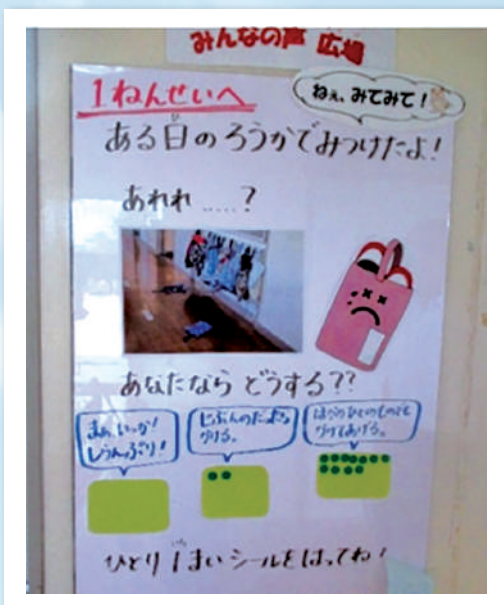 みんなの声 広場
1ねんせいへ
ねぇ、みてみて!
ある日のろうかでみつけたよ!
あれれ……?
あなたなら どうする??
まぁ、いっか!
しらんぷり!
じぶんのだったら
かける。
ほかのひとのものでも
かけてあげる。
ひとり1まいシールをはってね!